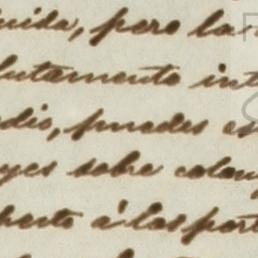 uida, pero la
lutamente int
dio, puedes es
yes sobre colon
pecto á las part